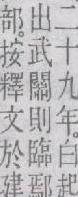 二十九年白起
出武關則臨鄢
郢。按釋文於建